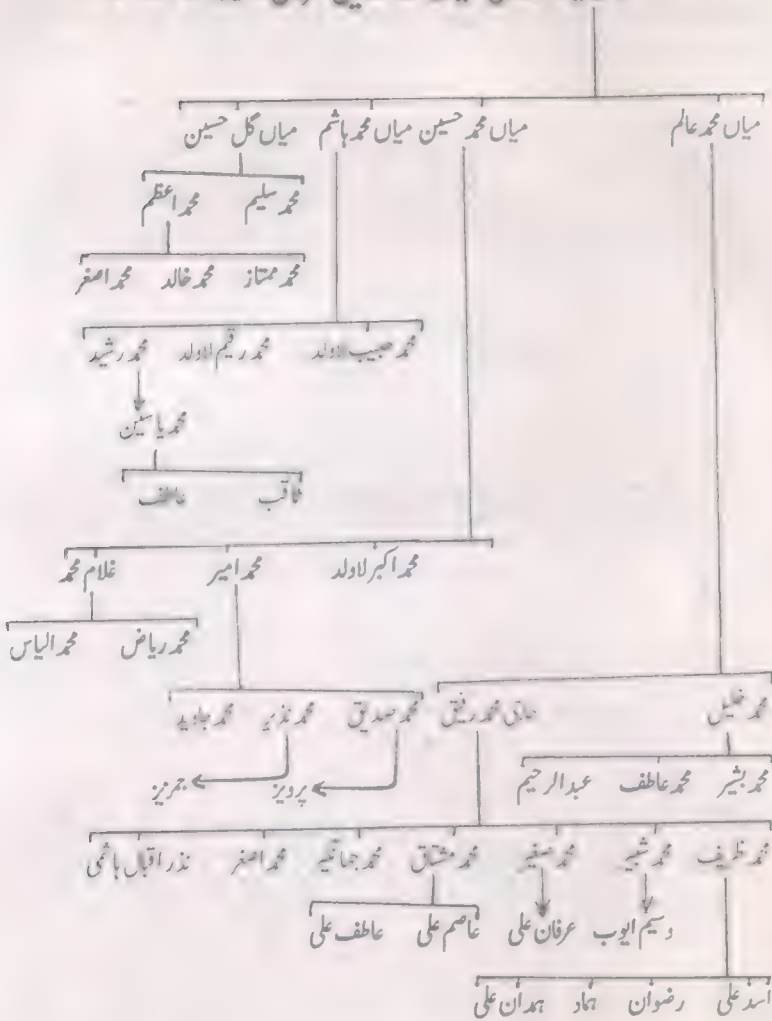 میاں محمد عالم میاں محمد حسین میاں محمد ہاشم میاں گل حسین
محمد سلیم محمد اعظم
محمد ممتاز محمد خالد محمد اصغر
محمد حبیب لاولد محمد رقیم لاولد محمد رشید
محمد یاسین
ثاقب عاطف
محمد اکبر لاولد محمد امیر غلام محمد
محمد ریاض محمد الیاس
محمد خلیل حاجی محمد رفیق محمد صدیق محمد نذیر محمد جاوید
محمد بشیر محمد عاطف عبدالرحیم پرویز جمریز
محمد ظریف محمد شبیر محمد صغیر محمد مشتاق محمد جہانگیر محمد اصغر نذر اقبال ہاشمی
وسیم ایوب عرفان علی عاصم علی عاطف علی
اسد علی رضوان ہماد ہمدان علی